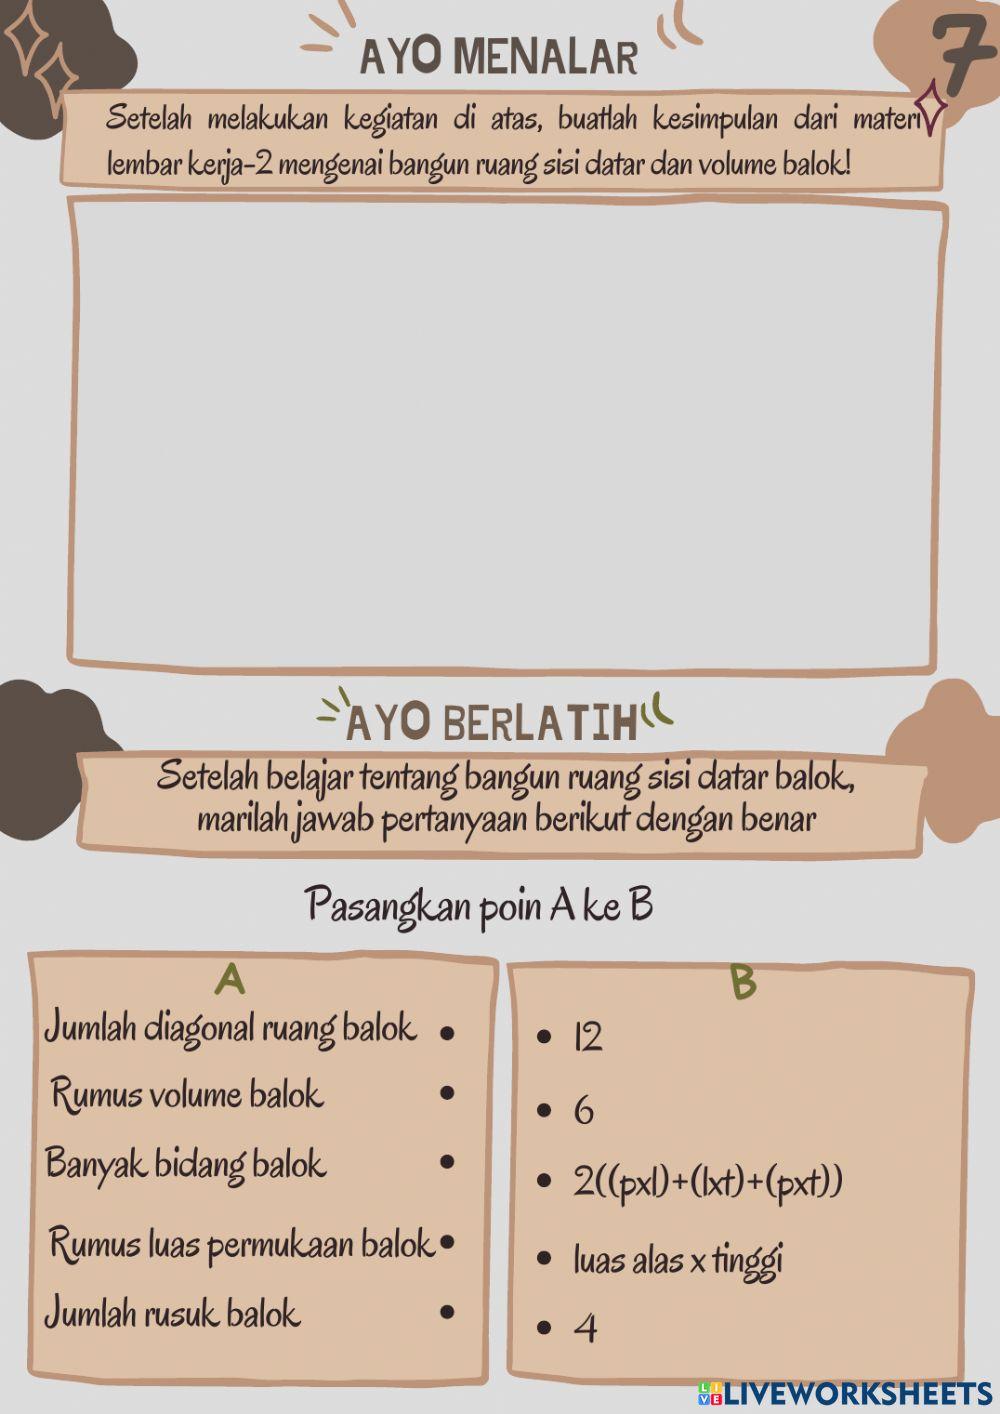 7
AYO MENALAR
Setelah melakukan kegiatan di atas, buatlah kesimpulan dari materi
lembar kerja-2 mengenai bangun ruang sisi datar dan volume balok!
AYO BERLATIH
Setelah belajar tentang bangun ruang sisi datar balok,
marilah jawab pertanyaan berikut dengan benar
Pasangkan poin A ke B
A
Jumlah diagonal ruang balok •
Rumus volume balok •
Banyak bidang balok •
Rumus luas permukaan balok •
Jumlah rusuk balok •
B
• 12
• 6
• 2((pxl)+(lxt)+(pxt))
• luas alas x tinggi
• 4
LIVE LIVEWORKSHEETS